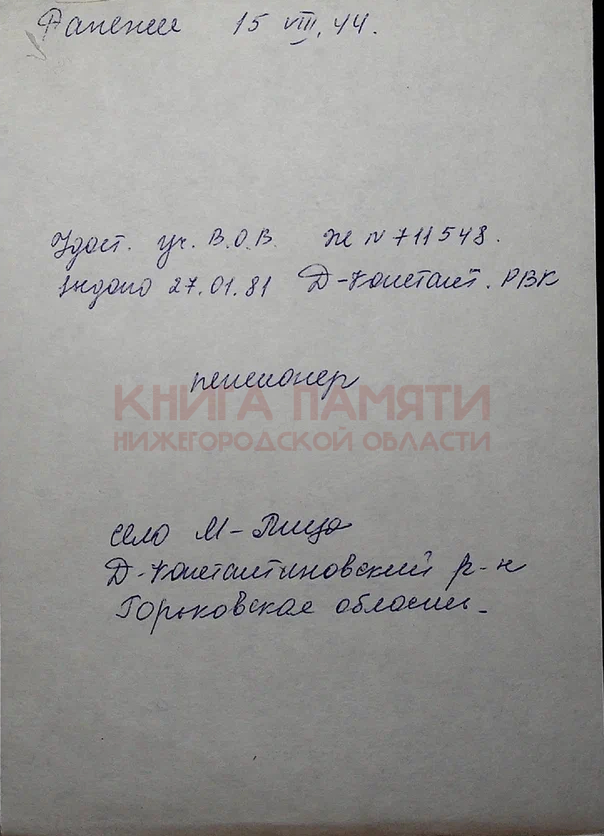 Ранение 15 VIII, 44.
Удост. уч. В.О.В. Ж N 711548.
выдано 27.01.81 Д-Констант. РВК
пенсионер
КНИГА ПАМЯТИ
НИЖЕГОРОДСКОЙ ОБЛАСТИ
село М-Пица
Д-Константиновский р-н
Горьковская область